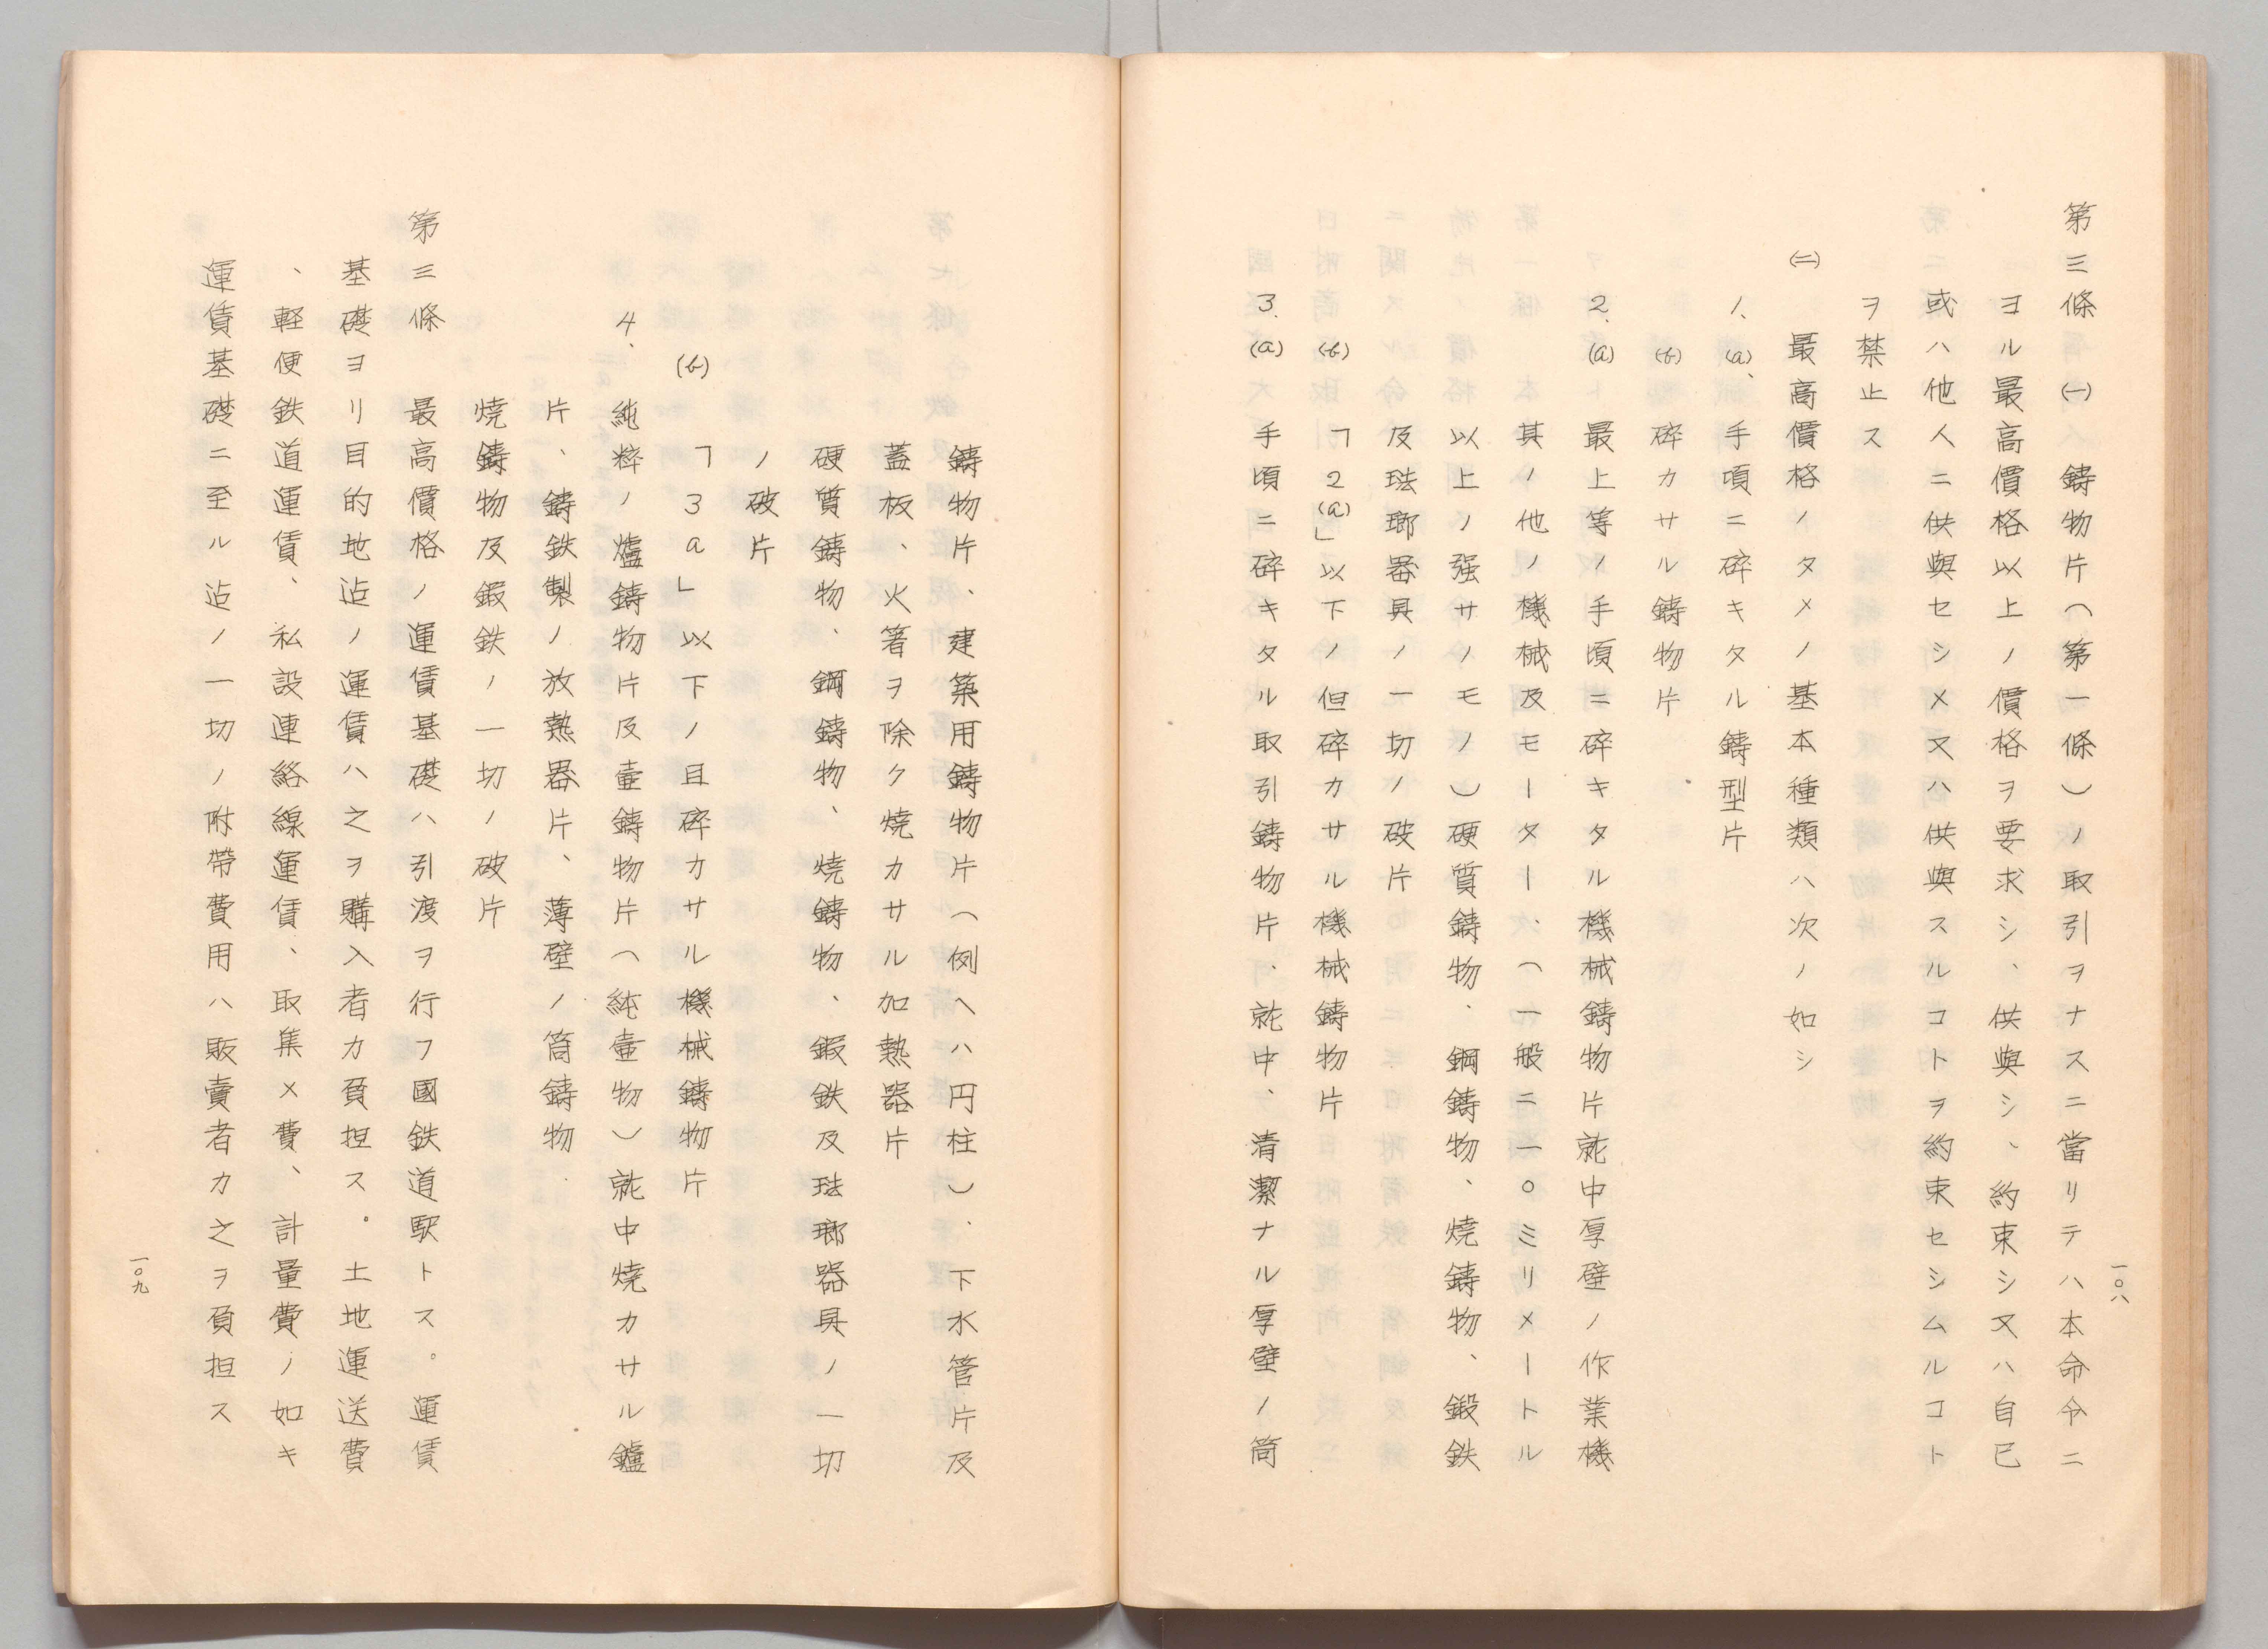 第三條㈠　鋳物片（第一條）ノ取引ヲナスニ當リテハ本命令ニ
ヨル最高價格以上ノ價格ヲ要求シ、供與シ、約束シ又ハ自己
或ハ他人ニ供與セシメ又ハ供與スルコトヲ約束セシムルコト
ヲ禁止ス
㈡　最高價格ノタメノ基本種類ハ次ノ如シ
1、(a)、手頃ニ碎キタル鑄型片
(b)　碎カサル鑄物片
2、(a)　最上等ノ手頃ニ碎キタル機械鑄物片就中厚壁ノ作業機
其ノ他ノ機械及モーター、（一般ニ一〇ミリメートル
以上ノ强サノモノ）硬質鑄物、鋼鑄物、焼鑄物、鍛鉄
及琺瑯器具ノ一切ノ破片
(b)　「2(a)」以下ノ但碎カサル機械鑄物片
3.(a)　手頃ニ碎キタル取引鑄物片、就中、清潔ナル厚壁ノ筒
一〇八
鑄物片、建築用鑄物片（例ヘハ円柱）、下水管片及
蓋板、火箸ヲ除ク焼カサル加熱器片
硬質鑄物、鋼鑄物、焼鑄物、鍛鉄及琺瑯器具ノ一切
ノ破片
(b)　「3a」以下ノ且碎カサル機械鑄物片
4、純粹ノ爐鑄物片及壷鑄物片（純壷物）就中焼カサル鑪
片、鑄鉄製ノ放熱器片、薄壁ノ筒鑄物、
焼鑄物及鍛鉄ノ一切ノ破片
第三條　最高價格ノ運賃基礎ハ引渡ヲ行フ國鉄道駅トス。運賃
基礎ヨリ目的地迠ノ運賃ハ之ヲ購入者カ負担ス。土地運送費
、軽便鉄道運賃、私設連絡線運賃、取集メ費、計量費ノ如キ
運賃基礎ニ至ル迠ノ一切ノ附帶費用ハ販賣者カ之ヲ負担ス
一〇九